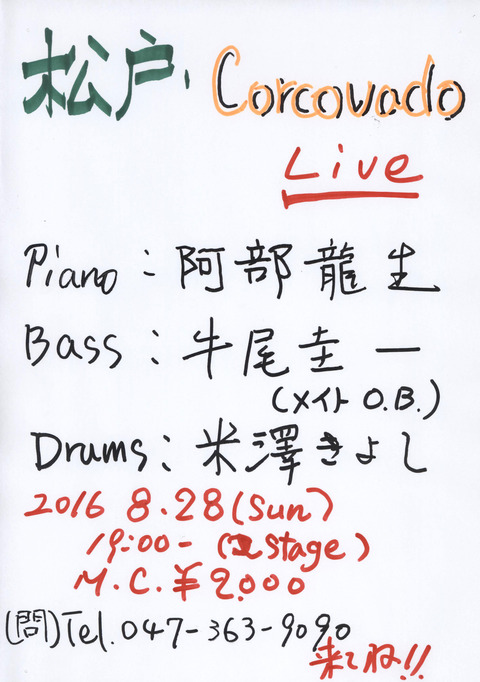 松戸, Corcovado
Live
Piano : 阿部龍生
Bass : 牛尾圭一
(メイト O.B.)
Drums : 米澤きよし
2016 8.28 (sun)
19:00 - (2 stage)
M.C. ¥2.000
(問) Tel. 047-363-9090
来てね!!